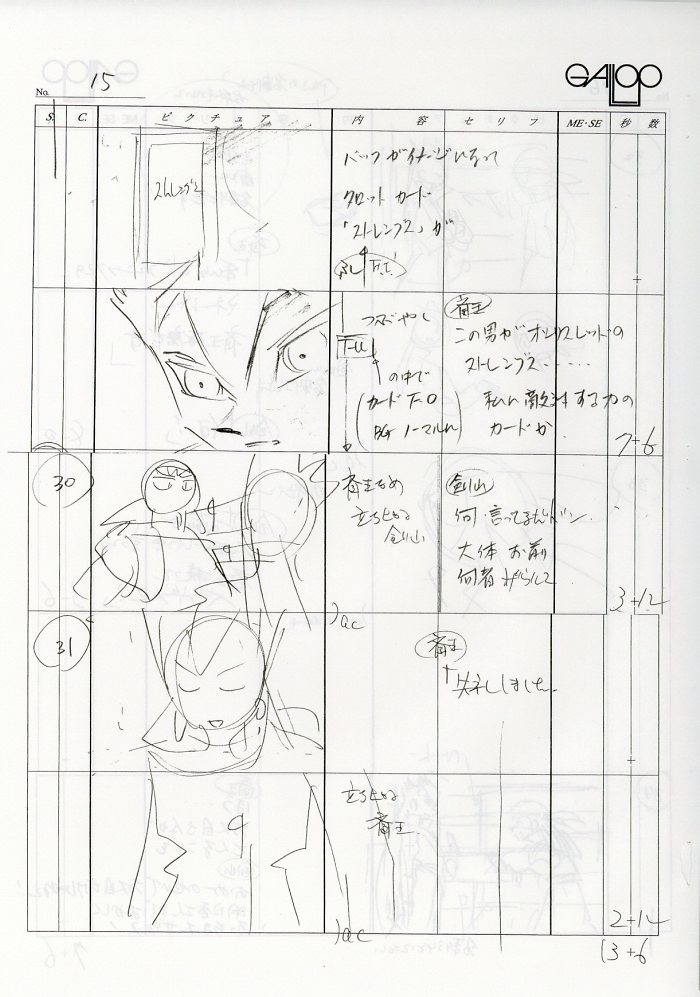 GALLOP
No. 15
S. C. ピクチュア 内容 セリフ ME・SE 秒数
ストレングス
バックがイメージになって
タロットカード
「ストレングス」が
斎王
つぶやし
この男がオシリスレッドの
T.U
ストレングス……
の中で
カード F.O
私に敵対する力の
BG ノーマルに
カードか
7+6
30
斎王なめ
剣山
立ちせまる
剣山
何言ってるドン
大体お前
何者
3+12
ac
31
斎王
失礼しました
立ち
斎王
2+12
ac
13+6